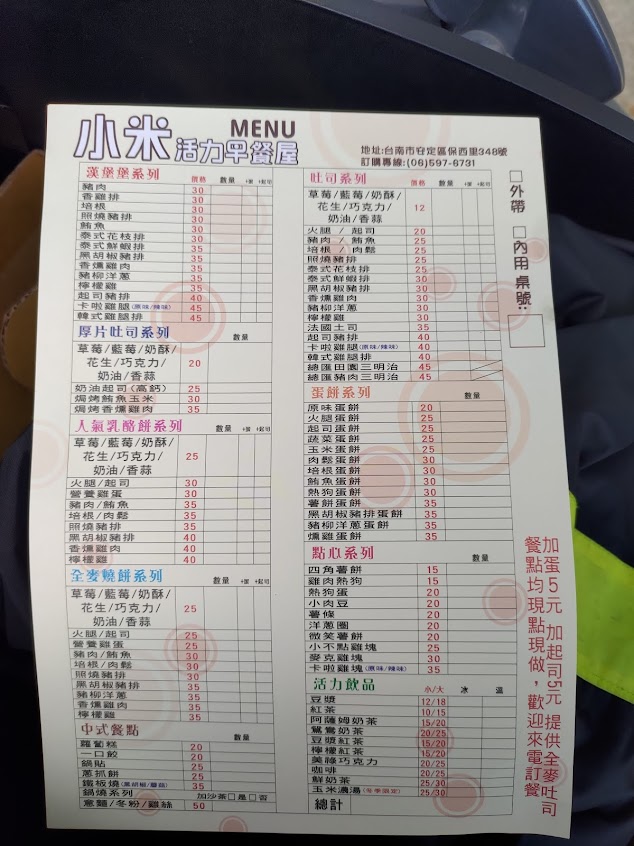 小米 活力早餐屋
MENU
地址:台南市安定區保西里348號
訂購專線:(06)597-6731
漢堡堡系列 價格 數量 +蛋 +起司
豬肉 30
香雞排 30
培根 30
照燒豬排 30
鮪魚 30
泰式花枝排 35
泰式鮮蝦排 35
黑胡椒豬排 35
香燻雞肉 35
豬柳洋蔥 35
檸檬雞 35
起司豬排 40
卡啦雞腿(原味/辣味) 45
韓式雞腿排 45
厚片吐司系列 數量
草莓/藍莓/奶酥/
花生/巧克力/ 20
奶油/香蒜
奶油起司(高鈣) 25
焗烤鮪魚玉米 30
焗烤香燻雞肉 35
人氣乳酪餅系列 數量 +蛋 +起司
草莓/藍莓/奶酥/
花生/巧克力/ 25
奶油/香蒜
火腿/起司 30
營養雞蛋 30
豬肉/鮪魚 35
培根/肉鬆 35
照燒豬排 35
黑胡椒豬排 40
香燻雞肉 40
檸檬雞 40
全麥燒餅系列 數量 +蛋 +起司
草莓/藍莓/奶酥/
花生/巧克力/ 25
奶油/香蒜
火腿/起司 25
營養雞蛋 25
豬肉/鮪魚 30
培根/肉鬆 30
照燒豬排 30
黑胡椒豬排 35
豬柳洋蔥 35
香燻雞肉 35
檸檬雞 35
中式餐點 數量
蘿蔔糕 20
一口餃 20
鍋貼 25
蔥抓餅 25
鐵板燒(黑胡椒/蘑菇) 35
鍋燒系列 加沙茶□是□否
意麵/冬粉/雞絲 50
吐司系列 價格 數量 +蛋 +起司
草莓/藍莓/奶酥/
花生/巧克力/ 12
奶油/香蒜
火腿 / 起司 20
豬肉 / 鮪魚 25
培根 / 肉鬆 25
照燒豬排 25
泰式花枝排 25
泰式鮮蝦排 30
黑胡椒豬排 30
香燻雞肉 30
豬柳洋蔥 30
檸檬雞 30
法國土司 35
起司豬排 40
卡啦雞腿(原味/辣味) 40
韓式雞腿排 40
總匯田園三明治 45
總匯豬肉三明治 45
蛋餅系列 數量
原味蛋餅 20
火腿蛋餅 25
起司蛋餅 25
蔬菜蛋餅 25
玉米蛋餅 25
肉鬆蛋餅 30
培根蛋餅 30
鮪魚蛋餅 30
熱狗蛋餅 30
薯餅蛋餅 35
黑胡椒豬排蛋餅 35
豬柳洋蔥蛋餅 35
燻雞蛋餅 35
點心系列 數量
四角薯餅 15
雞肉熱狗 15
熱狗蛋 20
小肉豆 20
薯條 20
洋蔥圈 20
微笑薯餅 20
小不點雞塊 25
麥克雞塊 30
卡啦雞塊(原味/辣味) 35
活力飲品 小/大 冰 溫
豆漿 12/18
紅茶 10/15
阿薩姆奶茶 15/20
鴛鴦奶茶 20/25
豆漿紅茶 15/20
檸檬紅茶 15/20
美祿巧克力 20/25
咖啡 20/25
鮮奶茶 25/30
玉米濃湯(冬季限定) 25/30
總計
□外帶 □內用 桌號:
加蛋5元 加起司5元 提供全麥吐司
餐點均現點現做,歡迎來電訂餐